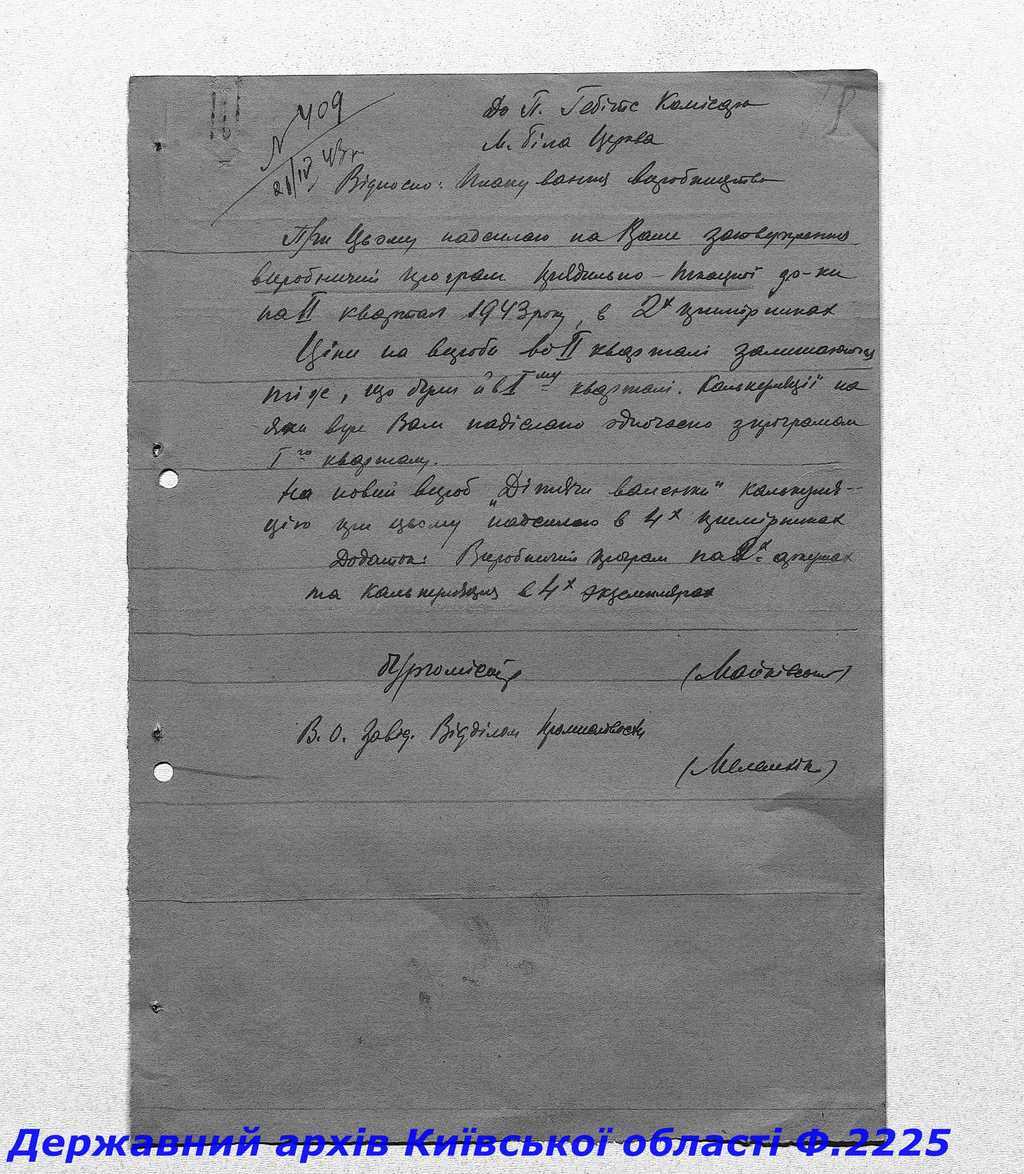 N 409
До П. Гебітс Комісара
21/IV 43 г
м. Біла Церква
Відносно: планування виробництва
При цьому надсилаю на Ваше затвердження
виробничий програм прядильно-ткацької
на II квартал 1943 року, в 2х примірниках
Ціни на вироби во II кварталі залишаються
ті ж, що були й в I му кварталі. Калькуляції на
які вже Вам надіслано одночасно з програмам
I го кварталу.
На новий виріб „Дітячи валенки" калькуля-
цію при цьому надсилаю в 4х примірниках
Додаток: Виробничий програм на 2х аркушах
та калькуляция в 4х экземплярах
Бургомістр (Майківський)
В.О. Завід. Відділом промисловости
Державний архів Київської області Ф.2225